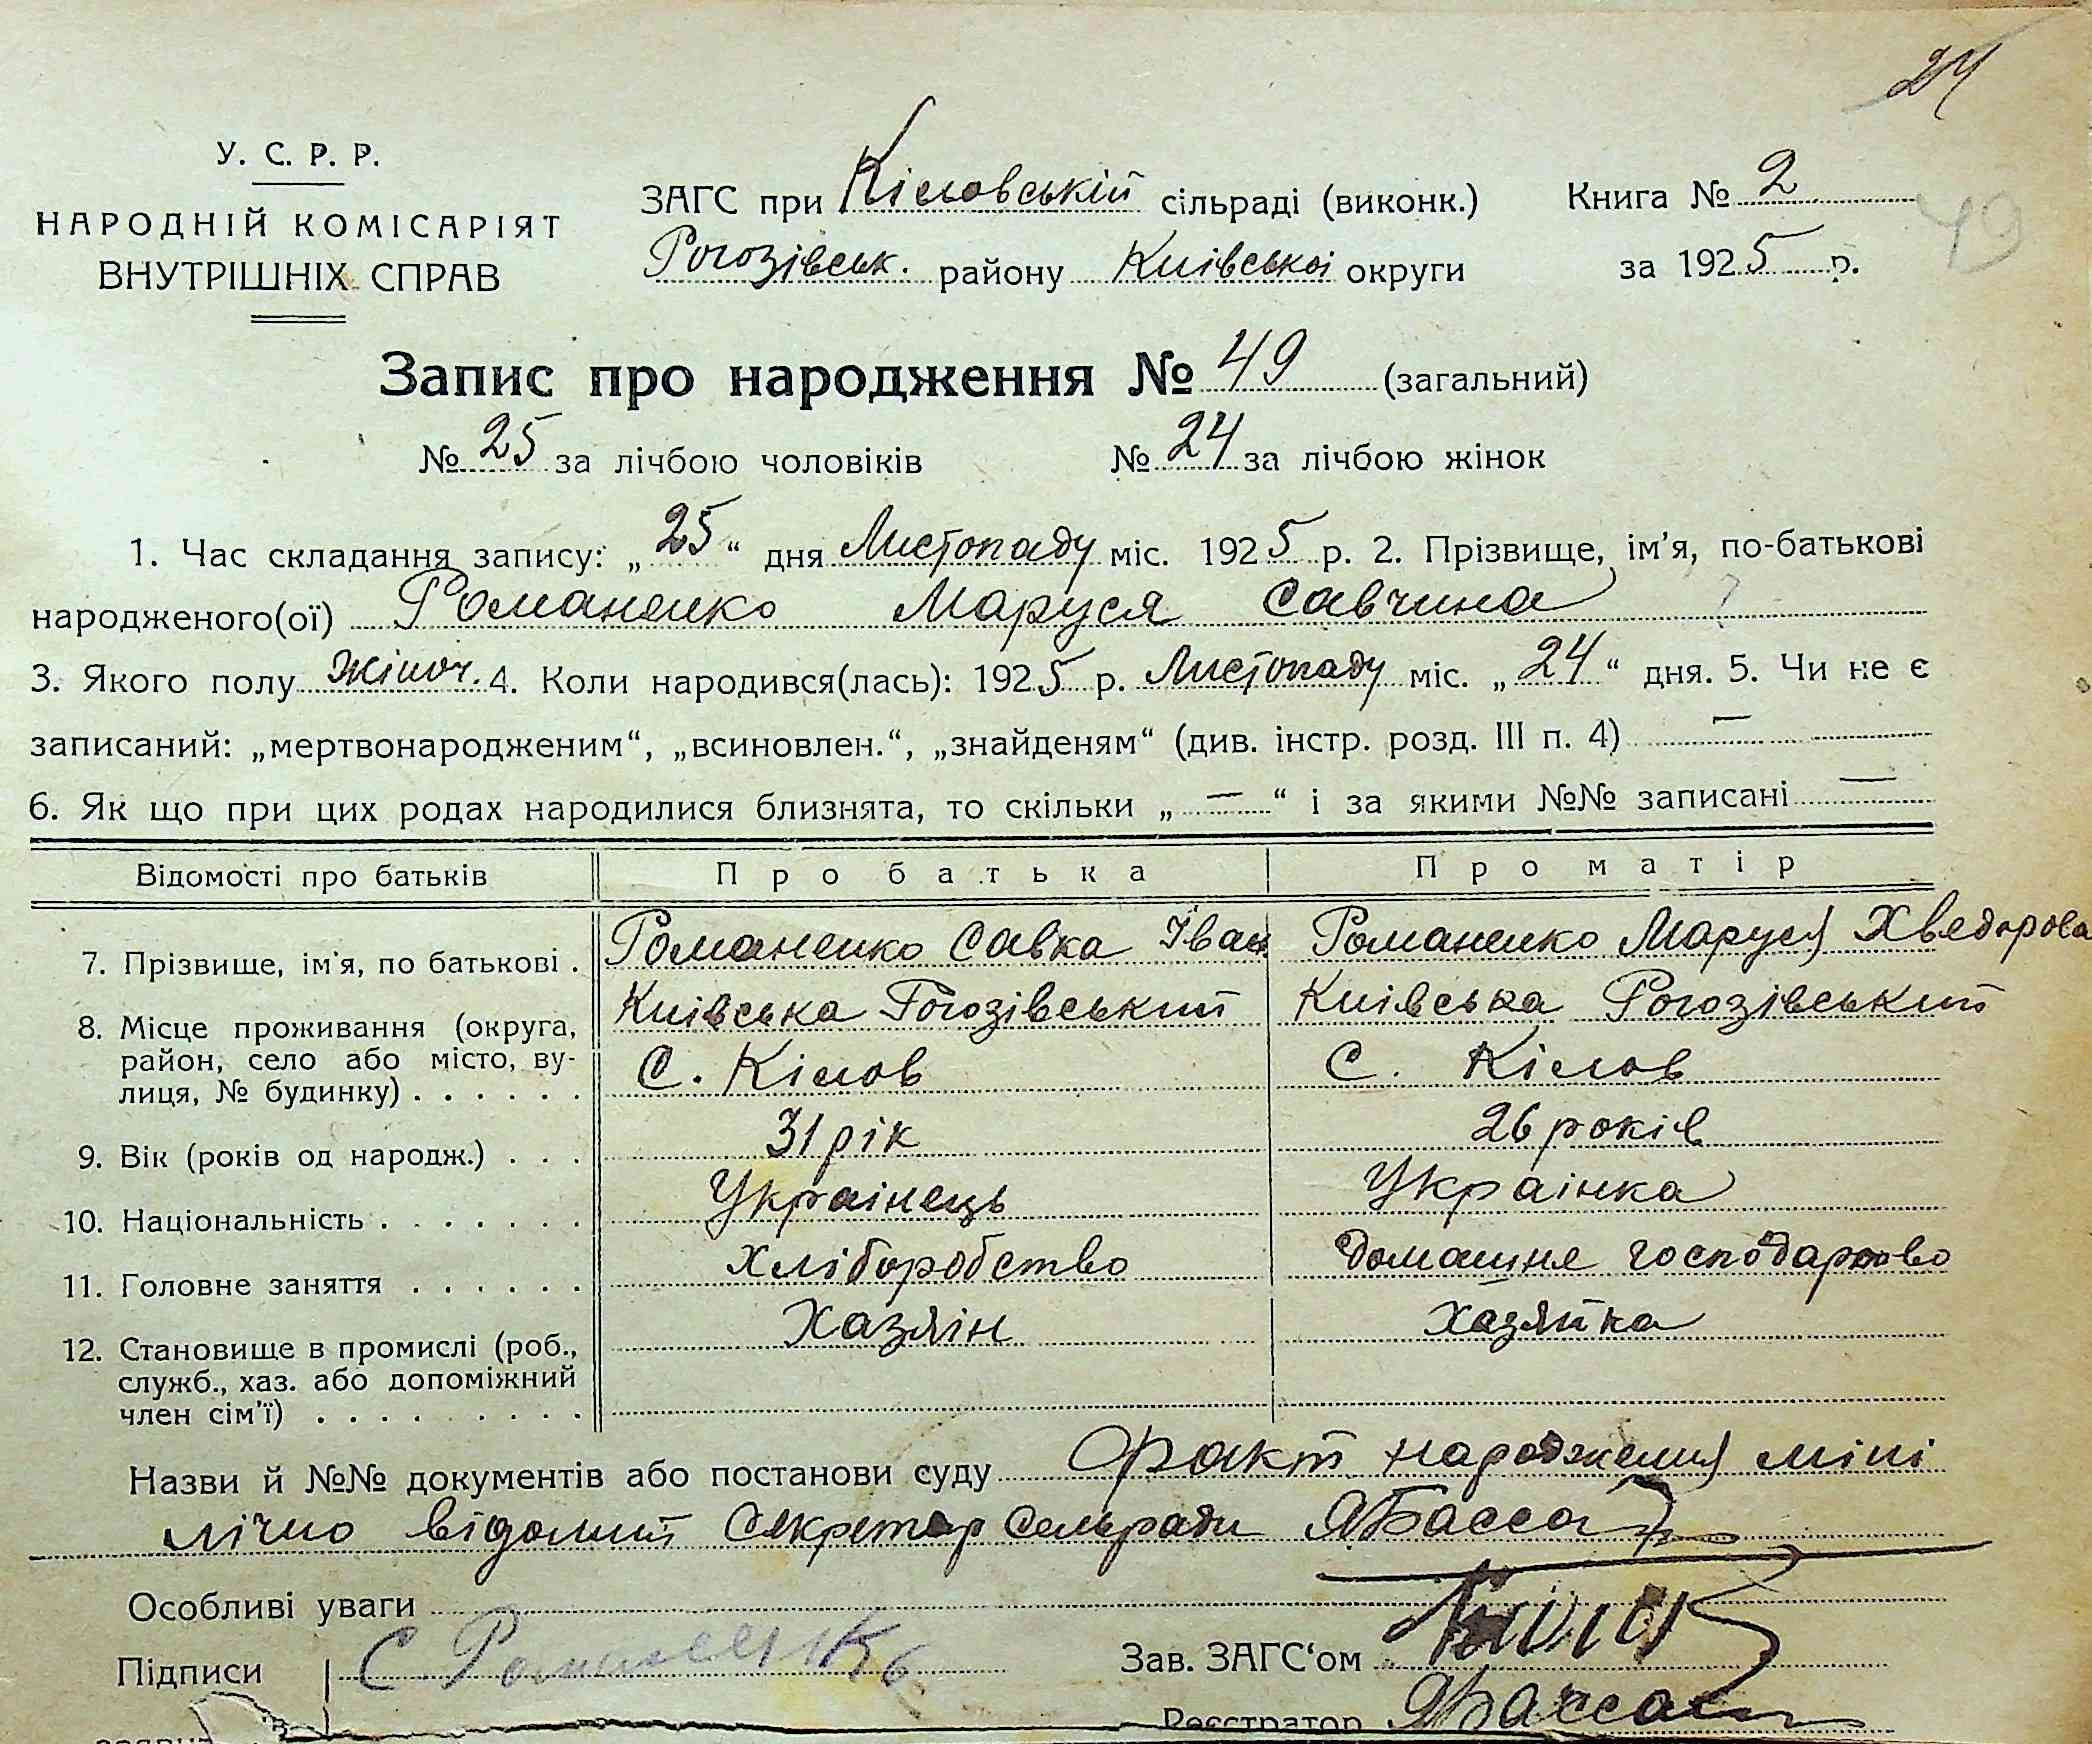 24
У. С. Р. Р.
НАРОДНІЙ КОМІСАРІЯТ
ВНУТРІШНІХ СПРАВ
ЗАГС при Кіловській сільраді (виконк.)
Рогозівськ. району Київської округи
Книга № 2
49
за 1925 р.
Запис про народження № 49 (загальний)
№ 25 за лічбою чоловіків № 24 за лічбою жінок
1. Час складання запису: „25“ дня Листопаду міс. 1925 р. 2. Прізвище, ім'я, по-батькові
народженого(ої) Романенко Маруся Савчина
3. Якого полу жіноч. 4. Коли народився(лась): 1925 р. Листопаду міс. „24“ дня. 5. Чи не є
записаний: „мертвонародженим“, „всиновлен.“, „знайденям“ (див. інстр. розд. III п. 4) —
6. Як що при цих родах народилися близнята, то скільки „—“ і за якими №№ записані —
Відомості про батьків Про батька Про матір
7. Прізвище, ім'я, по батькові . Романенко Савка Іван Романенко Маруся Хведорова
8. Місце проживання (округа, район, село або місто, вулиця, № будинку) . . . . . . Київська Рогозівський Київська Рогозівський
С. Кілов С. Кілов
9. Вік (років од народж.) . . . 31 рік 26 років
10. Національність . . . . . . . Українець Українка
11. Головне заняття . . . . . . Хліборобство домашне господарство
12. Становище в промислі (роб., служб., хаз. або допоміжний член сім'ї) . . . . . . . . . Хазяїн хазяйка
Назви й №№ документів або постанови суду Факт народження міні
лічно відомий Секретар Сельради ЯБасса
Особливі уваги
Підписи С Романенко Зав. ЗАГС'ом
Реєстратор ЯБасса